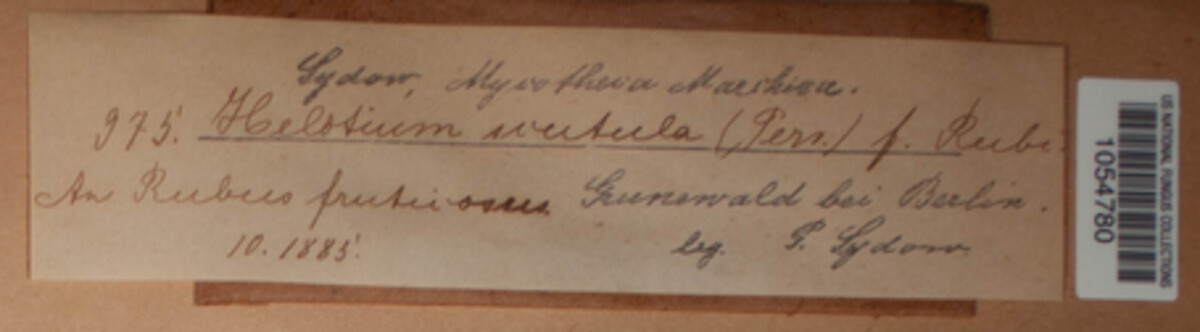 Sydow, Mycotheca Marchica.
975. Helotium scutula (Pers.) f. Rubi.
An Rubus fruticosus Grunewald bei Berlin.
10. 1885. leg. P. Sydow
US NATIONAL FUNGUS COLLECTIONS
1054780